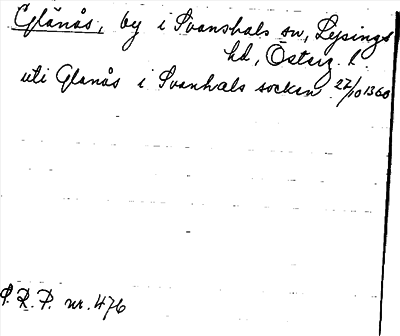 Glänås, by i Svanshals sn, Lysings
hd, Österg. l.
uti Glanås i Svanhals sockan 22/10 1360
S.R.P. nr. 476